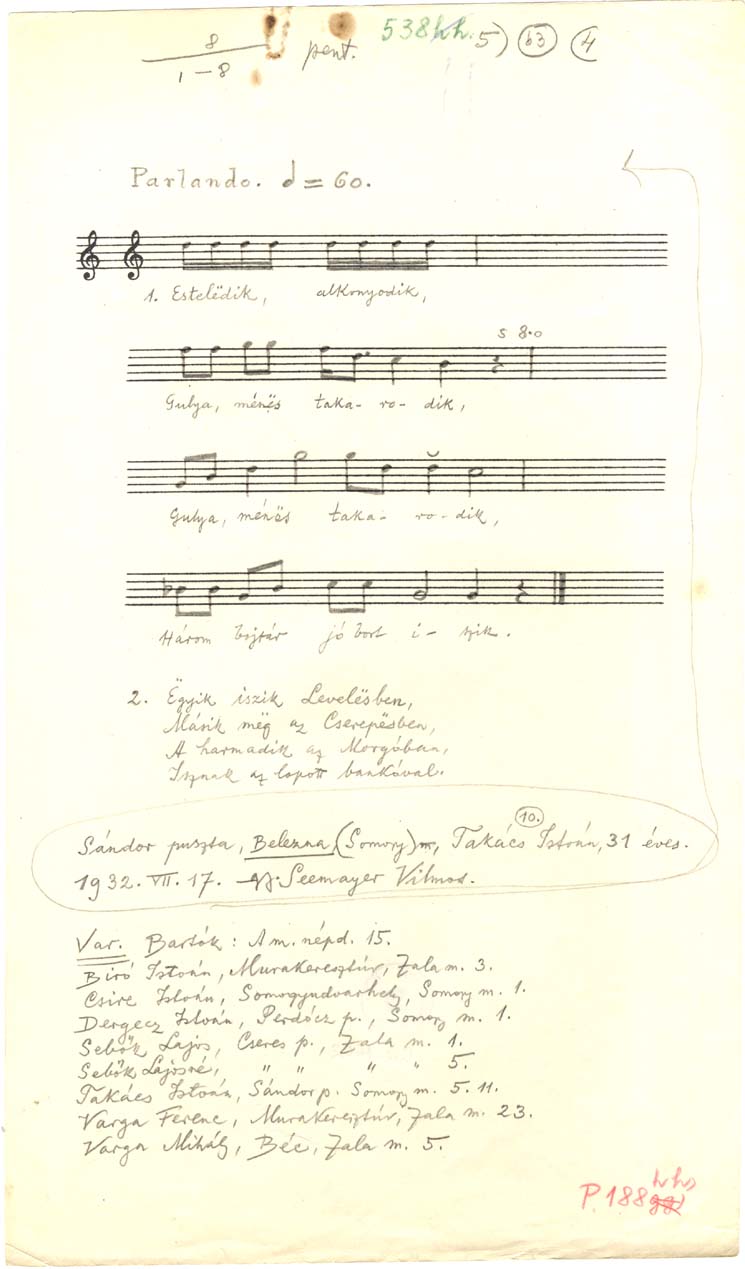 8
1-8
pent.
538kh. 5) 63 4
Parlando. = 60.
1. Estelëdik, alkonyodik,
5 8.0
Gulya, ménës taka- ro- dik,
Gulya, ménës taka- ro- dik,
Három bojtár jó bort i- szik.
2. Ëgyik iszik Levelësben,
Másik mëg az Cserepësben,
A harmadik az Morgóban,
Isznak az lopott bankóval.
10.
Sándor puszta, Belezna (Somogy) m, Takács István, 31 éves.
1932. VII. 17. gy. Seemayer Vilmos.
Var. Bartók: A m. népd. 15.
Biró István, Murakeresztúr, Zala m. 3.
Csire István, Somogyudvarhely, Somogy m. 1.
Dergecz István, Perdócz p., Somogy m. 1.
Sebők Lajos, Cseres p., Zala m. 1.
Sebők Lajosné, " " " " 5.
Takács István, Sándor p. Somogy m. 5. 11.
Varga Ferenc, Murakeresztúr, Zala m. 23.
Varga Mihály, Béc, Zala m. 5.
P. 188